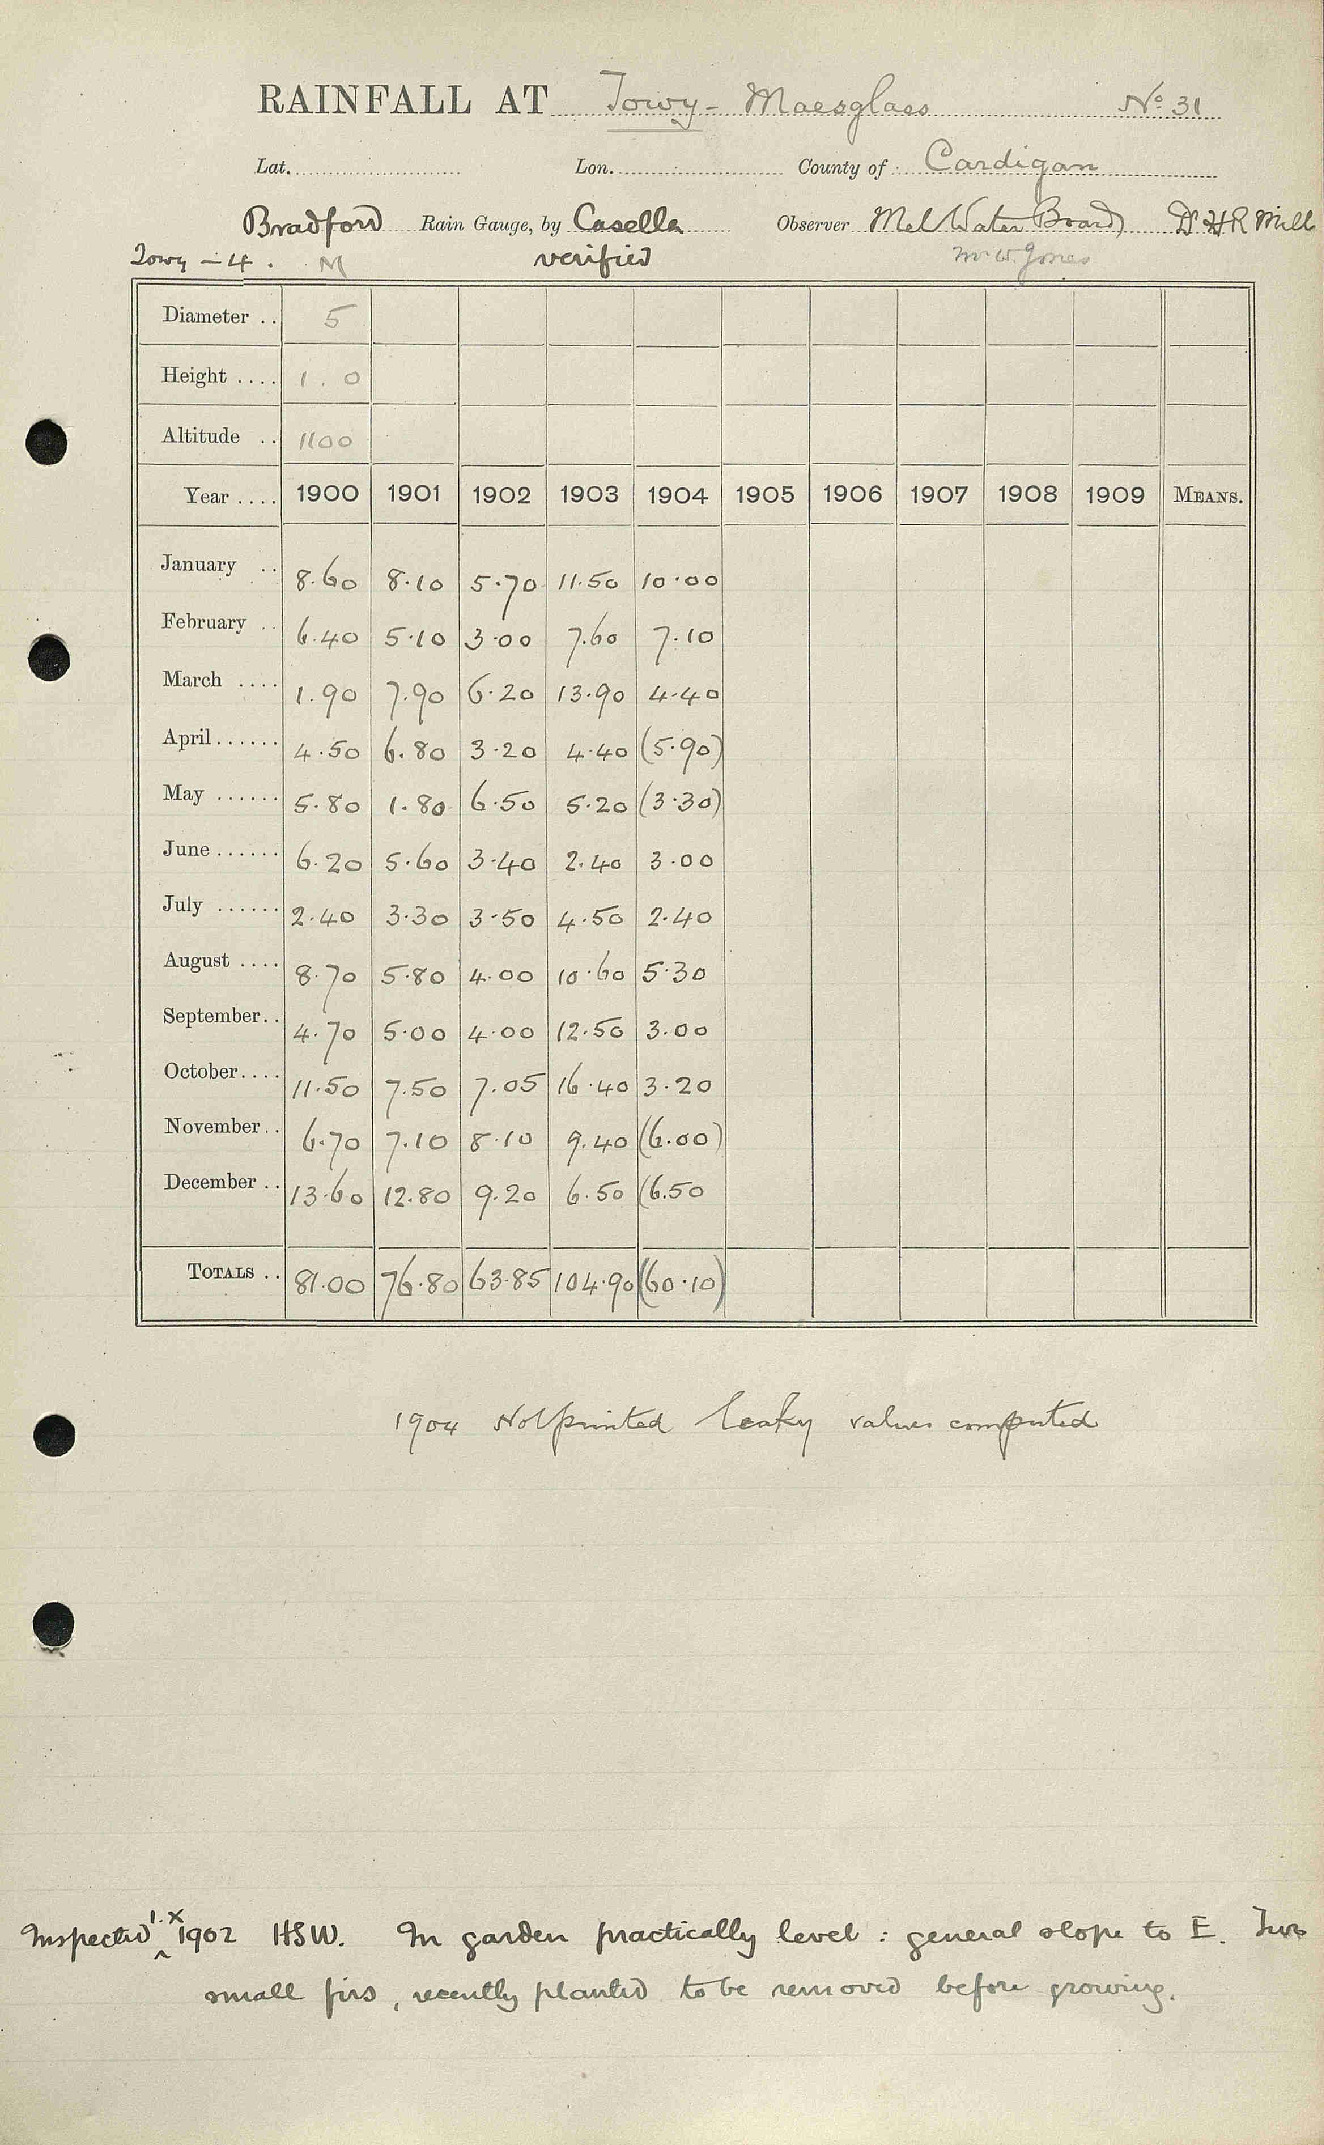 RAINFALL AT Towy - Maesglaes No. 31
Lat. Lon. County of Cardigan
Bradford Rain Gauge, by Casella Observer Met Water Board Dr H R Mill
Towy - 4. M verified Mr W. Jones
Diameter .. 5
Height .... 1.0
Altitude .. 1100
Year .... 1900 1901 1902 1903 1904 1905 1906 1907 1908 1909 MEANS.
January .. 8.60 8.10 5.70 11.50 10.00
February .. 6.40 5.10 3.00 7.60 7.10
March .... 1.90 7.90 6.20 13.90 4.40
April ...... 4.50 6.80 3.20 4.40 (5.90)
May ...... 5.80 1.80 6.50 5.20 (3.30)
June ...... 6.20 5.60 3.40 2.40 3.00
July ...... 2.40 3.30 3.50 4.50 2.40
August .... 8.70 5.80 4.00 10.60 5.30
September.. 4.70 5.00 4.00 12.50 3.00
October.... 11.50 7.50 7.05 16.40 3.20
November.. 6.70 7.10 8.10 9.40 (6.00)
December .. 13.60 12.80 9.20 6.50 (6.50
TOTALS .. 81.00 76.80 63.85 104.90 (60.10)
1904 Not printed leaky values computed
Inspected 1.X 1902 HSW. In garden practically level : general slope to E. Two
small firs, recently planted to be removed before growing.